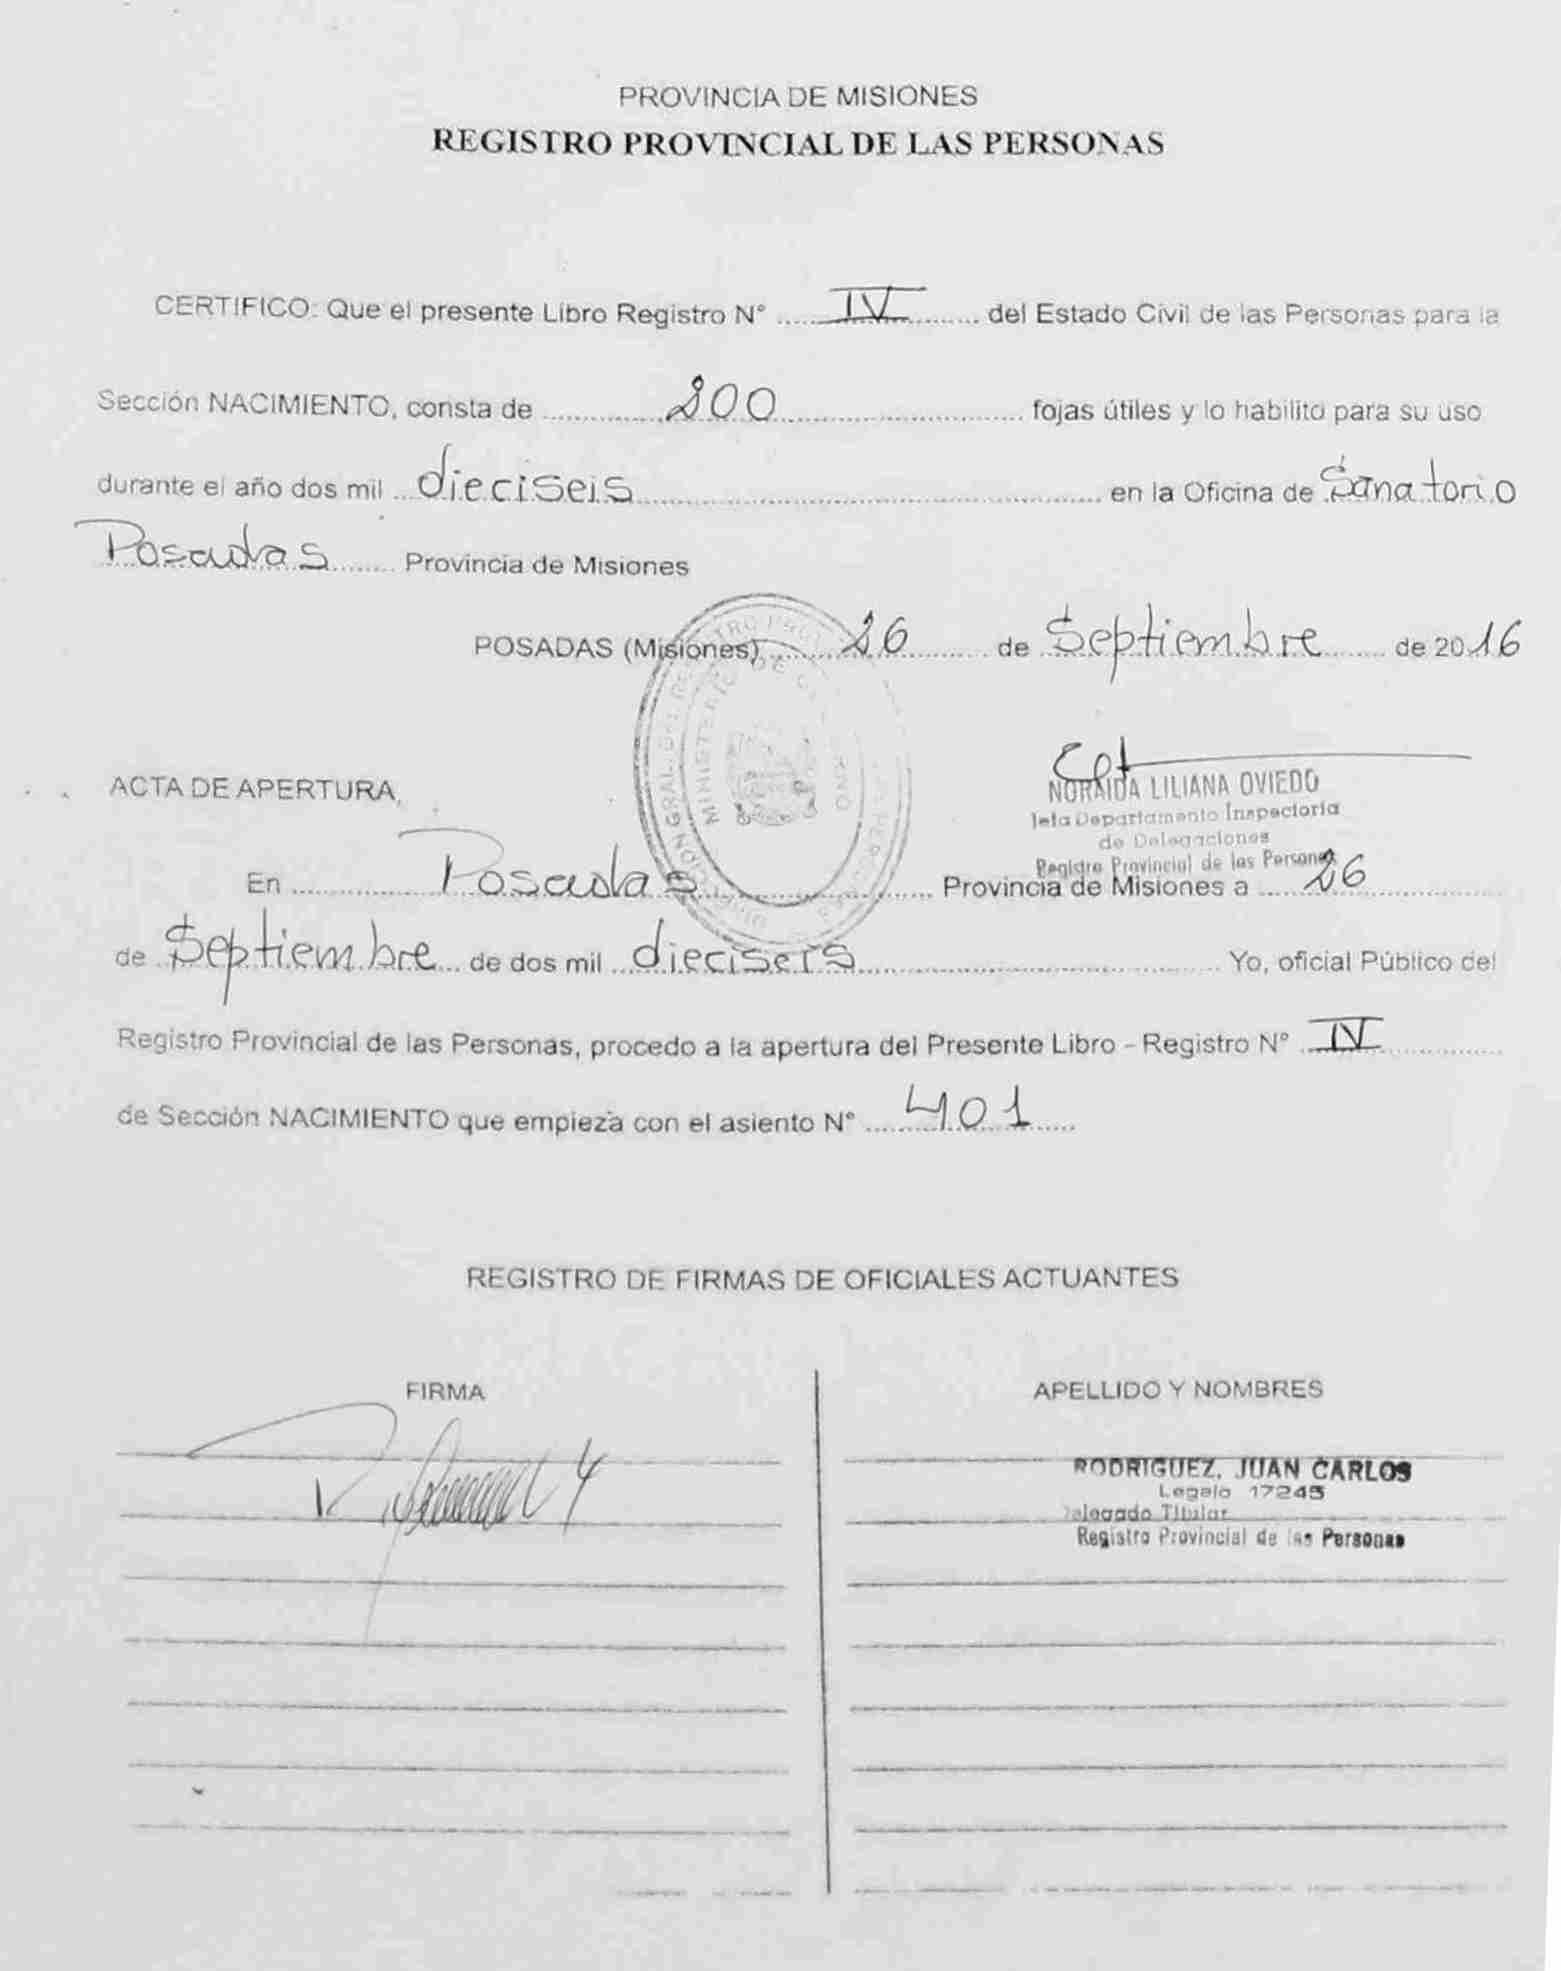 PROVINCIA DE MISIONES
REGISTRO PROVINCIAL DE LAS PERSONAS
CERTIFICO: Que el presente Libro Registro N° IV del Estado Civil de las Personas para la
Sección NACIMIENTO, consta de 200 fojas útiles y lo habilito para su uso
durante el año dos mil dieciseis en la Oficina de Sanatorio
Posadas Provincia de Misiones
POSADAS (Misiones) 26 de Septiembre de 2016
NORAIDA LILIANA OVIEDO
Jefa Departamento Inspectoría
de Delegaciones
Registro Provincial de las Personas
ACTA DE APERTURA,
En Posadas Provincia de Misiones a 26
de Septiembre de dos mil dieciseis Yo, oficial Público del
Registro Provincial de las Personas, procedo a la apertura del Presente Libro - Registro N° IV
de Sección NACIMIENTO que empieza con el asiento N° 401
REGISTRO DE FIRMAS DE OFICIALES ACTUANTES
FIRMA APELLIDO Y NOMBRES
RODRIGUEZ, JUAN CARLOS
Legajo 17245
Delegado Titular
Registro Provincial de las Personas